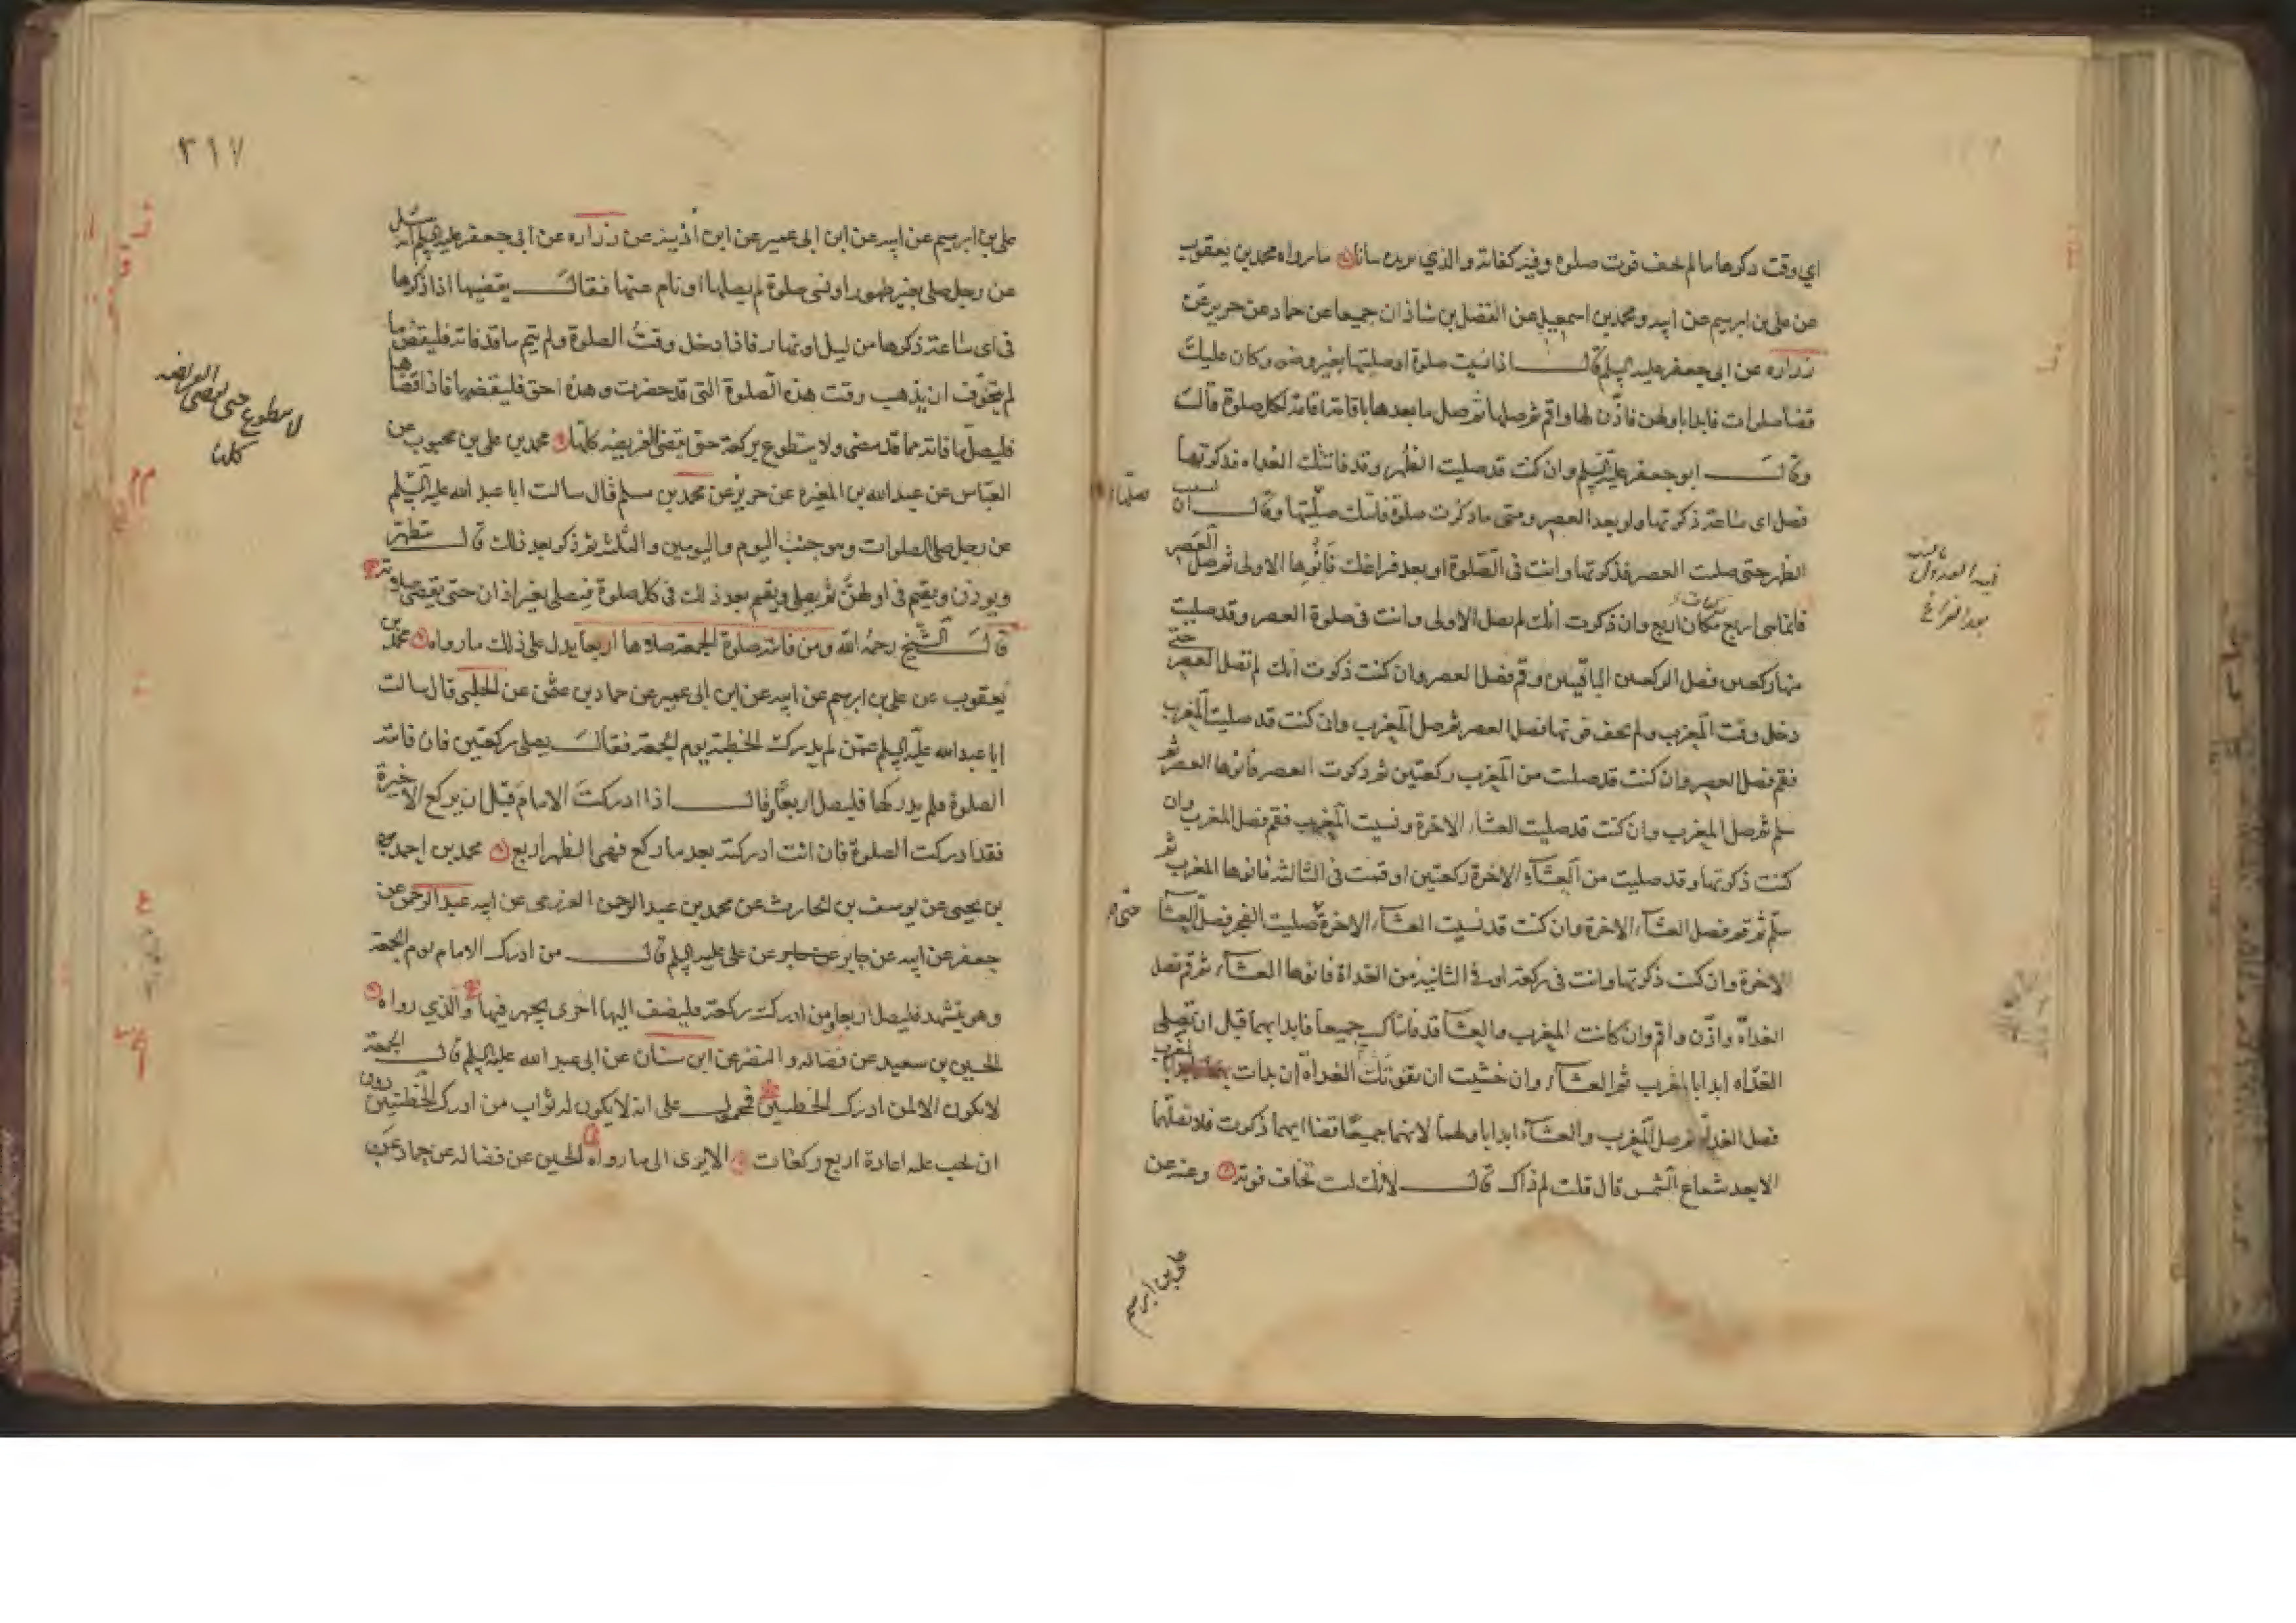 اي وقت ذكرها ما لم يخف فوت صلوة وفيه كفاية والذي يزيده بيانا ما رواه محمد بن يعقوب
عن علي بن ابرهيم عن ابيه ومحمد بن اسمعيل عن الفضل بن شاذان جميعا عن حماد عن حريز عن
زراره عن ابي جعفر عليه السلم قال اذا نسيت صلوة او صليتها بغير وضوء وكان عليك
قضا صلوات فابدا باولهن فاذن لها واقم ثم صلها ثم صل ما بعدها باقامة اقامة لكل صلوة قال
وقال ابو جعفر عليه السلم وان كنت قد صليت الظهر وقد فاتتك الغداه فذكرتها
فصل اي ساعة ذكرتها ولو بعد العصر ومتى ما ذكرت صلوة فاتتك صليتها وقال ان نسيت
الظهر حتى صليت العصر فذكرتها وانت في الصلوة او بعد فراغك فانوها الاولى ثم صل العصر
فانما هي اربع مكان اربع وان ذكرت انك لم تصل الاولى وانت في صلوة العصر وقد صليت
منها ركعتين فصل الركعتين الباقيتين وقم فصل العصر وان كنت ذكرت انك لم تصل العصر حتى
دخل وقت المغرب ولم تخف فوتها فصل العصر ثم صل المغرب وان كنت قد صليت المغرب
فقم فصل العصر وان كنت قد صليت من المغرب ركعتين ثم ذكرت العصر فانوها العصر ثم
سلم ثم صل المغرب وان كنت قد صليت العشاء الاخرة ونسيت المغرب فقم فصل المغرب وان
كنت ذكرتها وقد صليت من العشاء الاخرة ركعتين او قمت في الثالثة فانوها المغرب ثم
سلم ثم قم فصل العشاء الاخرة وان كنت قد نسيت العشاء الاخرة صليت الفجر فصل العشا
الاخرة وان كنت ذكرتها وانت في ركعة او في الثانية من الغداة فانوها العشاء ثم قم فصل
الغداة واذن واقم وان كانت المغرب والعشا قد فاتتاك جميعا فابدا بهما قبل ان تصلي
الغداه ابدا بالمغرب ثم العشاء وان خشيت ان تفوتك الغداة ان بدات المغرب
فصل الغداة ثم صل المغرب والعشاء ابدا باولهما لانهما جميعا قضا ايهما ذكرت فلا تصلهما
الا بعد شعاع الشمس قال قلت لم ذاك قال لانك لست تخاف فوته وعنه عن
علي بن ابرهيم
صلها
حتى
فيه العدول
بعد الفراغ
٣١٧
علي بن ابرهيم عن ابيه عن ابن ابي عمير عن ابن اذينه عن زراره عن ابي جعفر عليه السلم انه سئل
عن رجل صلى بغير طهور او نسي صلوة لم يصلها او نام عنها فقال يقضيها اذا ذكرها
في اي ساعة ذكرها من ليل او نهار فاذا دخل وقت الصلوة ولم يتم ما قد فاته فليقض ما
لم يتخوف ان يذهب وقت هذه الصلوة التي قد حضرت وهذه احق فليقضها فاذا قضاها
فليصل ما فاته مما قد مضى ولا يتطوع بركعة حتى يقضي الفريضه كلها محمد بن علي بن محبوب عن
العباس عن عبد الله بن المغيرة عن حريز عن محمد بن مسلم قال سالت ابا عبد الله عليه السلم
عن رجل صلى الصلوات وهو جنب اليوم واليومين والثلثة ثم ذكر بعد ذلك قال يتطهر
ويوذن ويقيم في اولهن ثم يصلي ويقيم بعد ذلك في كل صلوة فيصلي بغير اذان حتى يقضي صلوته
قال الشيخ رحمه الله ومن فاتته صلوة الجمعة صلاها اربعا يدل على ذلك ما رواه محمد بن
يعقوب عن علي بن ابرهيم عن ابيه عن ابن ابي عمير عن حماد بن عثمن عن الحلبي قال سالت
ابا عبد الله عليه السلم عمن لم يدرك الخطبة يوم الجمعة فقال يصلي ركعتين فان فاتته
الصلوة فلم يدركها فليصل اربعا وقال اذا ادركت الامام قبل ان يركع الاخيرة
فقد ادركت الصلوة فان انت ادركته بعد ما ركع فهي الظهر اربع محمد بن احمد
بن يحيى عن يوسف بن الحارث عن محمد بن عبد الرحمن العرزمي عن ابيه عبد الرحمن عن
جعفر عن ابيه عن جابر عن علي عليه السلم قال من ادرك الامام يوم الجمعة
وهو يتشهد فليصل اربعا ومن ادرك ركعة فليضف اليها اخرى يجهر فيها والذي رواه
الحسين بن سعيد عن فضاله والنضر عن ابن سنان عن ابي عبد الله عليه السلم قال الجمعة
لا يكون الا لمن ادرك الخطبتين فمحمول على انه لا يكون له ثواب من ادرك الخطبتين دون
ان يجب عليه اعادة اربع ركعات الا يرى الى ما رواه الحسين عن فضاله عن حماد عن
لا يتطوع حتى يقضي الفريضه
كلها